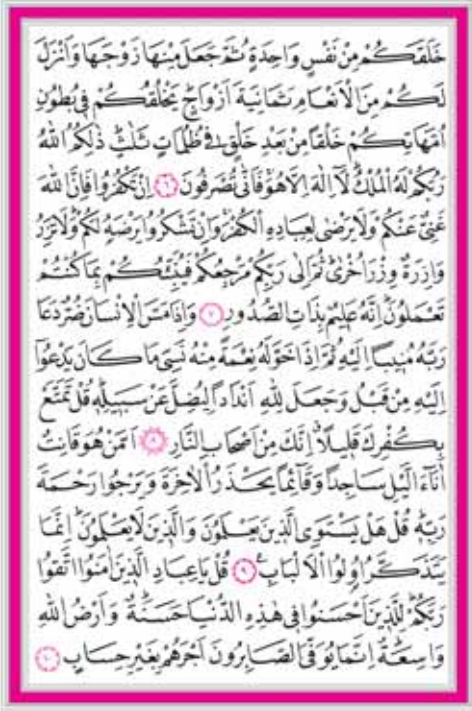 خَلَقَكُمْ مِنْ نَفْسٍ وَاحِدَةٍ ثُمَّ جَعَلَ مِنْهَا زَوْجَهَا وَاَنْزَلَ
لَكُمْ مِنَ الْاَنْعَامِ ثَمَانِيَةَ اَزْوَاجٍ يَخْلُقُكُمْ فٖي بُطُونِ
اُمَّهَاتِكُمْ خَلْقًا مِنْ بَعْدِ خَلْقٍ فٖي ظُلُمَاتٍ ثَلٰثٍ ذٰلِكُمُ اللّٰهُ
رَبُّكُمْ لَهُ الْمُلْكُ لَٓا اِلٰهَ اِلَّا هُوَ فَاَنّٰى تُصْرَفُونَ ٦ اِنْ تَكْفُرُوا فَاِنَّ اللّٰهَ
غَنِيٌّ عَنْكُمْ وَلَا يَرْضٰى لِعِبَادِهِ الْكُفْرَ وَاِنْ تَشْكُرُوا يَرْضَهُ لَكُمْ وَلَا تَزِرُ
وَازِرَةٌ وِزْرَ اُخْرٰى ثُمَّ اِلٰى رَبِّكُمْ مَرْجِعُكُمْ فَيُنَبِّئُكُمْ بِمَا كُنْتُمْ
تَعْمَلُونَ اِنَّهُ عَلٖيمٌ بِذَاتِ الصُّدُورِ ٧ وَاِذَا مَسَّ الْاِنْسَانَ ضُرٌّ دَعَا
رَبَّهُ مُنٖيبًا اِلَيْهِ ثُمَّ اِذَا خَوَّلَهُ نِعْمَةً مِنْهُ نَسِيَ مَا كَانَ يَدْعُٓوا
اِلَيْهِ مِنْ قَبْلُ وَجَعَلَ لِلّٰهِ اَنْدَادًا لِيُضِلَّ عَنْ سَبٖيلِهٖ قُلْ تَمَتَّعْ
بِكُفْرِكَ قَلٖيلًا اِنَّكَ مِنْ اَصْحَابِ النَّارِ ٨ اَمَّنْ هُوَ قَانِتٌ
اٰنَٓاءَ الَّيْلِ سَاجِدًا وَقَٓائِمًا يَحْذَرُ الْاٰخِرَةَ وَيَرْجُوا رَحْمَةَ
رَبِّهٖ قُلْ هَلْ يَسْتَوِي الَّذٖينَ يَعْلَمُونَ وَالَّذٖينَ لَا يَعْلَمُونَ اِنَّمَا
يَتَذَكَّرُ اُولُوا الْاَلْبَابِ ٩ قُلْ يَا عِبَادِ الَّذٖينَ اٰمَنُوا اتَّقُوا
رَبَّكُمْ لِلَّذٖينَ اَحْسَنُوا فٖي هٰذِهِ الدُّنْيَا حَسَنَةٌ وَاَرْضُ اللّٰهِ
وَاسِعَةٌ اِنَّمَا يُوَفَّى الصَّابِرُونَ اَجْرَهُمْ بِغَيْرِ حِسَابٍ ١٠